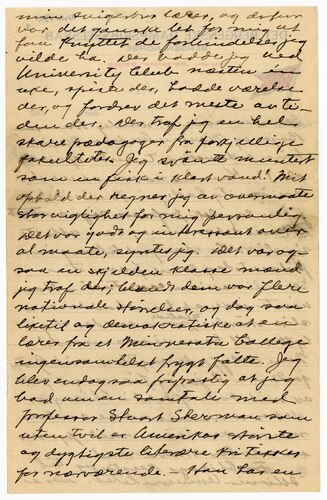 min svigerbros lærer, og derfor
var det ganske let for mig at
faa knyttet de forbindelser jeg
vilde ha. Der hadde jeg ved
University Club næsten in
uke, spiste der, hadde værelse
der, og fordrev det meste av ti-
den der. Der traf jeg en hel
skare pædagoger fra forskjellige
fakulteter. Jeg svømte muntert
som en fisk i klart vand! Mit
ophold der regner jeg av overmaate
stor vigtighet for mig personlig.
Det var godt og interessant over
al maate, synes jeg. Det var og-
saa en sjelden klasse mænd
jeg traf der; blandt dem var flere
nationale størrelser, og dog saa
liketil og demokratiske at en
lærer fra et Minnesota College
ingensomhelst frygt følte. Jeg
blev endogsaa frygtløs at jeg
bad um en samtale med
professor Stuart Sherman som
uten tvil er Amerikas største
og dygtigste literære kritikker
for nærværende. – Han har en